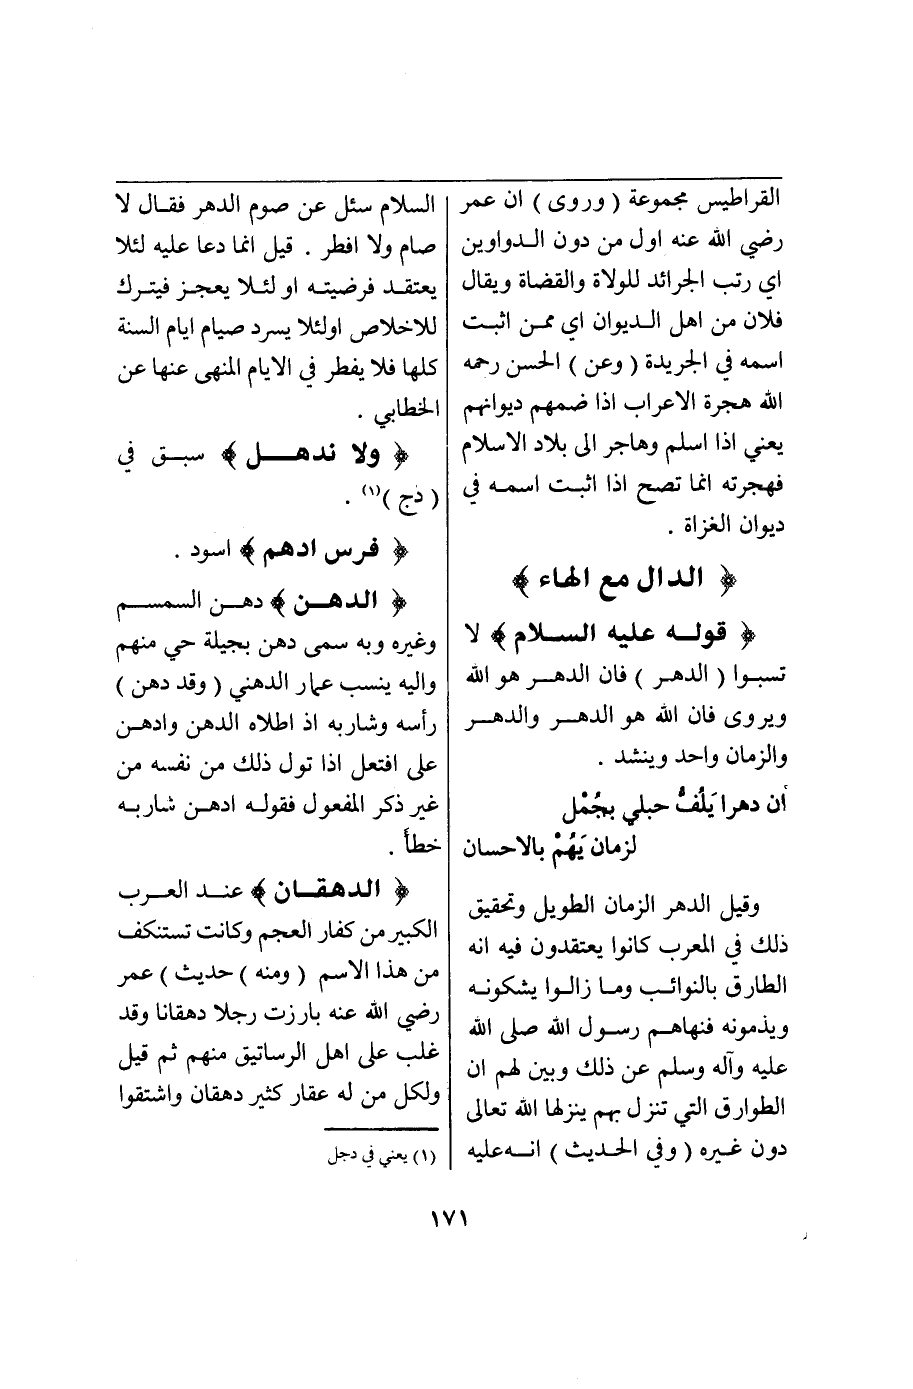 القراطيس مجموعة ( وروى ) ان عمر
رضي الله عنه اول من دون الدواوين
اي رتب الجرائد للولاة والقضاة ويقال
فلان من اهل الديوان اي ممن اثبت
اسمه في الجريدة ( وعن ) الحسن رحمه
الله هجرة الاعراب اذا ضمهم ديوانهم
يعني اذا اسلم وهاجر الى بلاد الاسلام
فهجرته انما تصح اذا اثبت اسمه في
ديوان الغزاة .
﴿ الدال مع الهاء ﴾
﴿ قوله عليه السلام ﴾ لا
تسبوا ( الدهر ) فان الدهر هو الله
ويروى فان الله هو الدهر والدهر
والزمان واحد وينشد .
أن دهرا يَلُفُّ حبلي بجُمْل
لزمان يَهُمْ بالاحسان
وقيل الدهر الزمان الطويل وتحقيق
ذلك في المعرب كانوا يعتقدون فيه انه
الطارق بالنوائب وما زالوا يشكونه
ويذمونه فنهاهم رسول الله صلى الله
عليه وآله وسلم عن ذلك وبين لهم ان
الطوارق التي تنزل بهم ينزلها الله تعالى
دون غيره ( وفي الحديث ) انه عليه
السلام سئل عن صوم الدهر فقال لا
صام ولا افطر . قيل انما دعا عليه لئلا
يعتقد فرضيته او لئلا يعجز فيترك
للاخلاص اولئلا يسرد صيام ايام السنة
كلها فلا يفطر في الايام المنهى عنها عن
الخطابي .
﴿ ولا ندهل ﴾ سبق في
( ذج )(١) .
﴿ فرس ادهم ﴾ اسود .
﴿ الدهن ﴾ دهن السمسم
وغيره وبه سمى دهن بجيلة حي منهم
واليه ينسب عمار الدهني ( وقد دهن )
رأسه وشاربه اذ اطلاه الدهن وادهن
على افتعل اذا تول ذلك من نفسه من
غير ذكر المفعول فقوله ادهن شاربه
خطأ .
﴿ الدهقان ﴾ عند العرب
الكبير من كفار العجم وكانت تستنكف
من هذا الاسم ( ومنه ) حديث ) عمر
رضي الله عنه بارزت رجلا دهقانا وقد
غلب على اهل الرساتيق منهم ثم قيل
ولكل من له عقار كثير دهقان واشتقوا
(١) يعني في دجل
١٧١